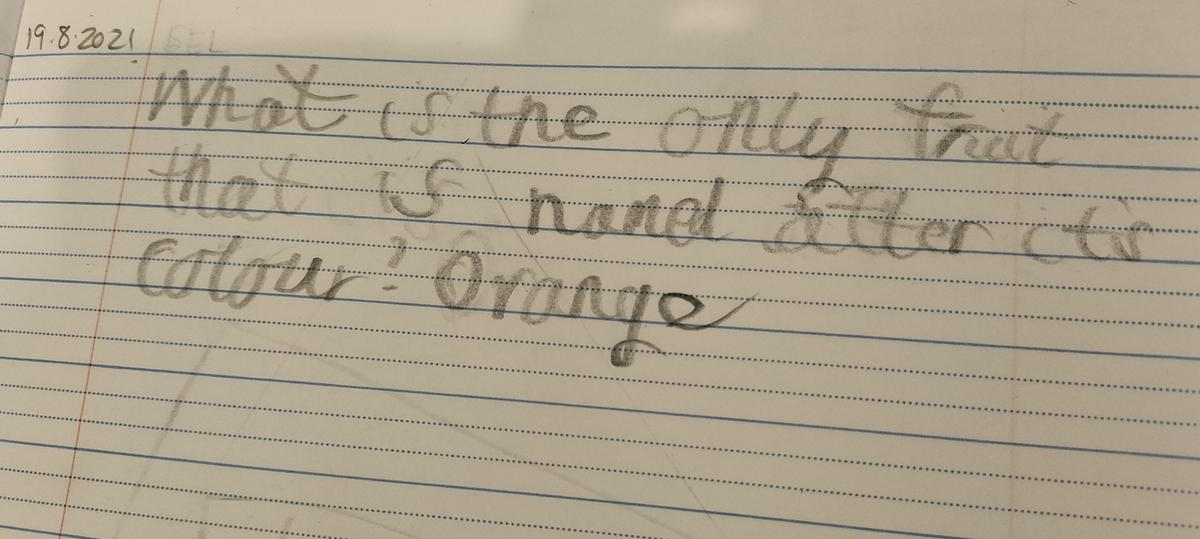 19.8.2021 SEL
What is the only fruit
that is named after it's
colour? Orange